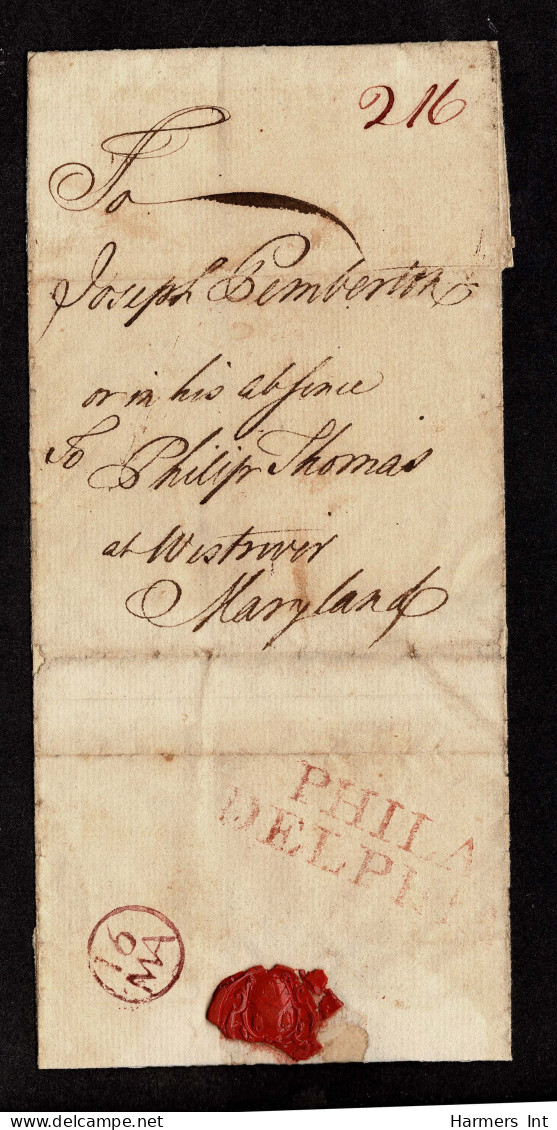 2 16
To
Joseph Pemberton
or in his absence
To Philip Thomas
at Westriver
Maryland
PHILA
DELPHIA
16
MA
Harmers Int